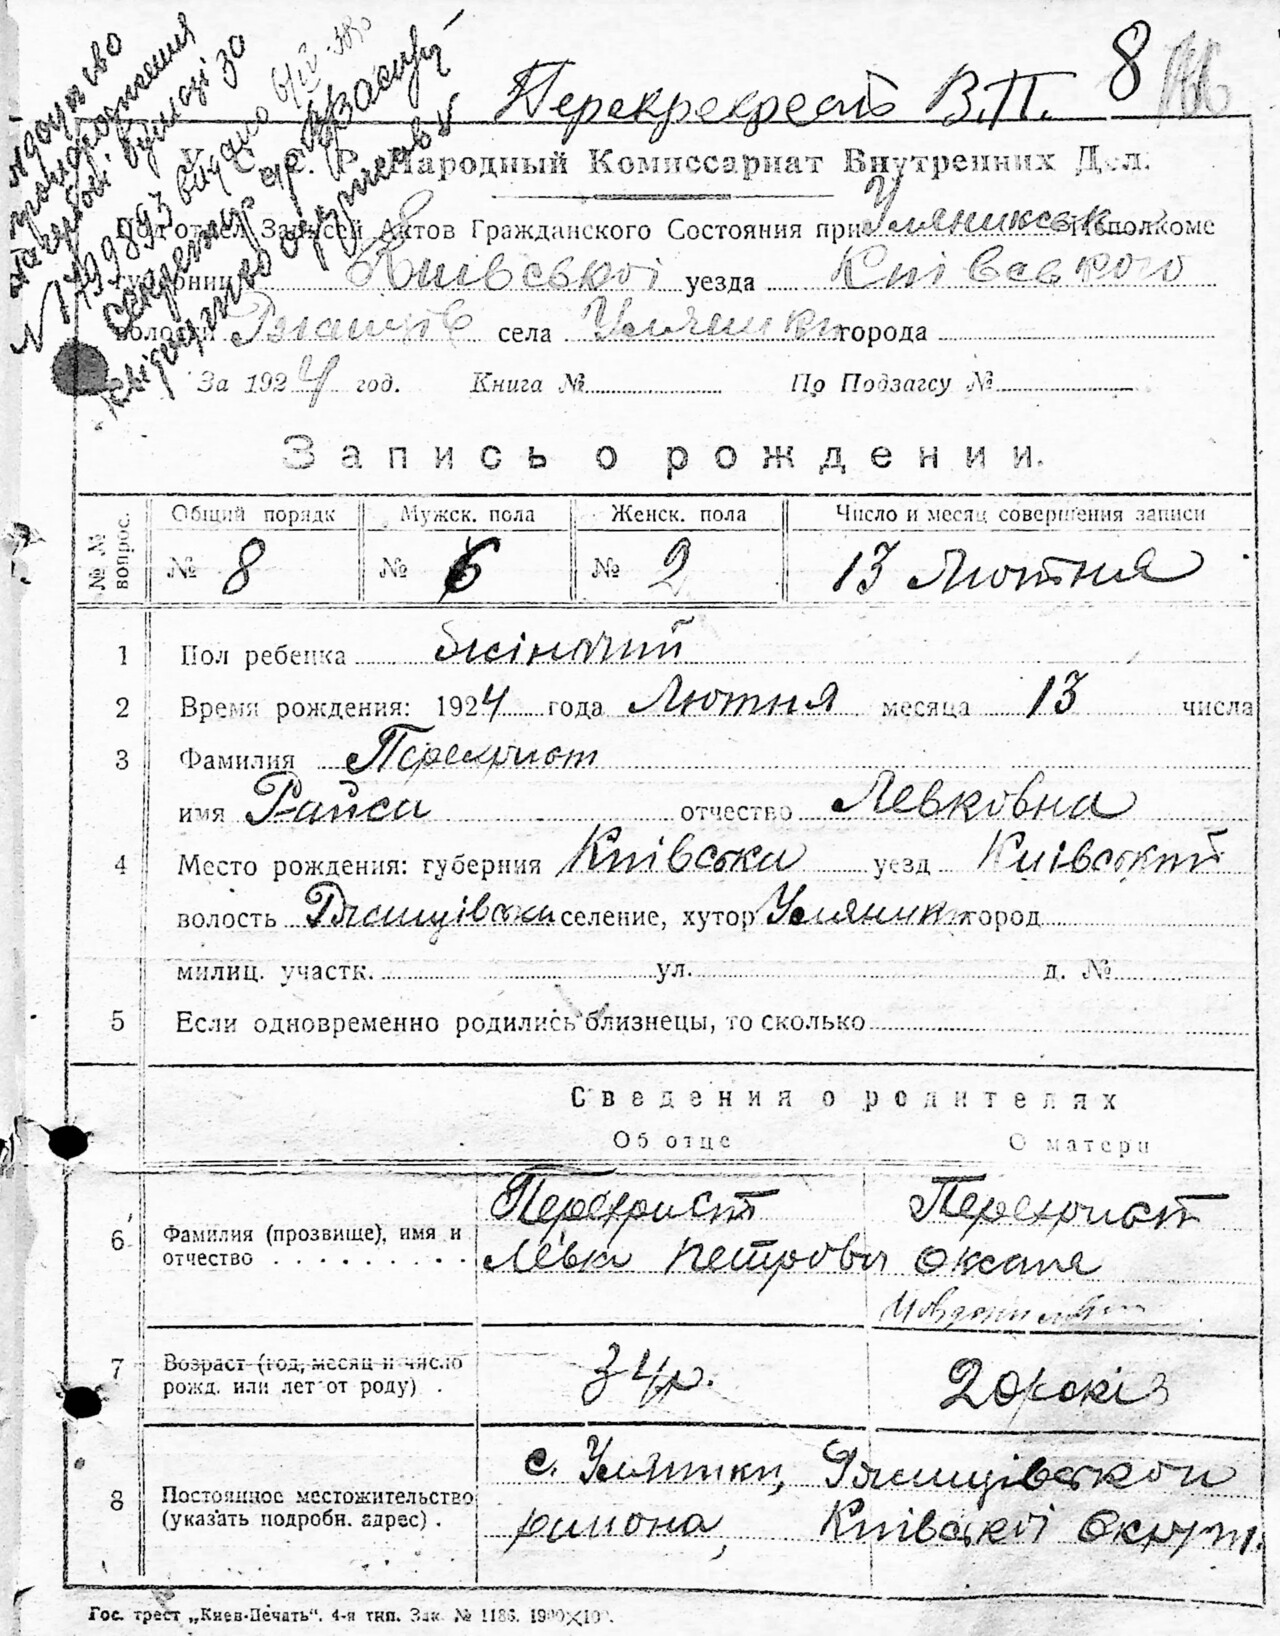 Перекрехрест В.П. 8
У. С. С. Р. Народный Комиссариат Внутренних Дел.
Подотдел Записей Актов Гражданского Состояния при Уляникськ Исполкоме
губернии Київської уезда Київського
волости Ржищів села Уляники города
За 1924 год. Книга № По Подзагсу №
Запись о рождении.
№№ вопрос. Общий порядк Мужск. пола Женск. пола Число и месяц совершения записи
№ 8 № 6 № 2 13 Лютня
1 Пол ребенка жіночий
2 Время рождения: 1924 года Лютня месяца 13 числа
3 Фамилия Перехрист
имя Раїса отчество Левковна
4 Место рождения: губерния Київська уезд Київський
волость Ржищівська селение, хутор Уляники город
милиц. участк. ул. д. №
5 Если одновременно родились близнецы, то сколько
Сведения о родителях
Об отце О матери
6 Фамилия (прозвище), имя и Перехрист Перехрист
отчество Левка Петрович Оксана
7 Возраст (год, месяц и число 34 р. 20 років
рожд. или лет от роду)
8 Постоянное местожительство с. Уляники, Ржищівської
(указать подробн. адрес) району, Київської Округи.
Гос. трест „Киев-Печать“. 4-я тип. Зак. № 1186.